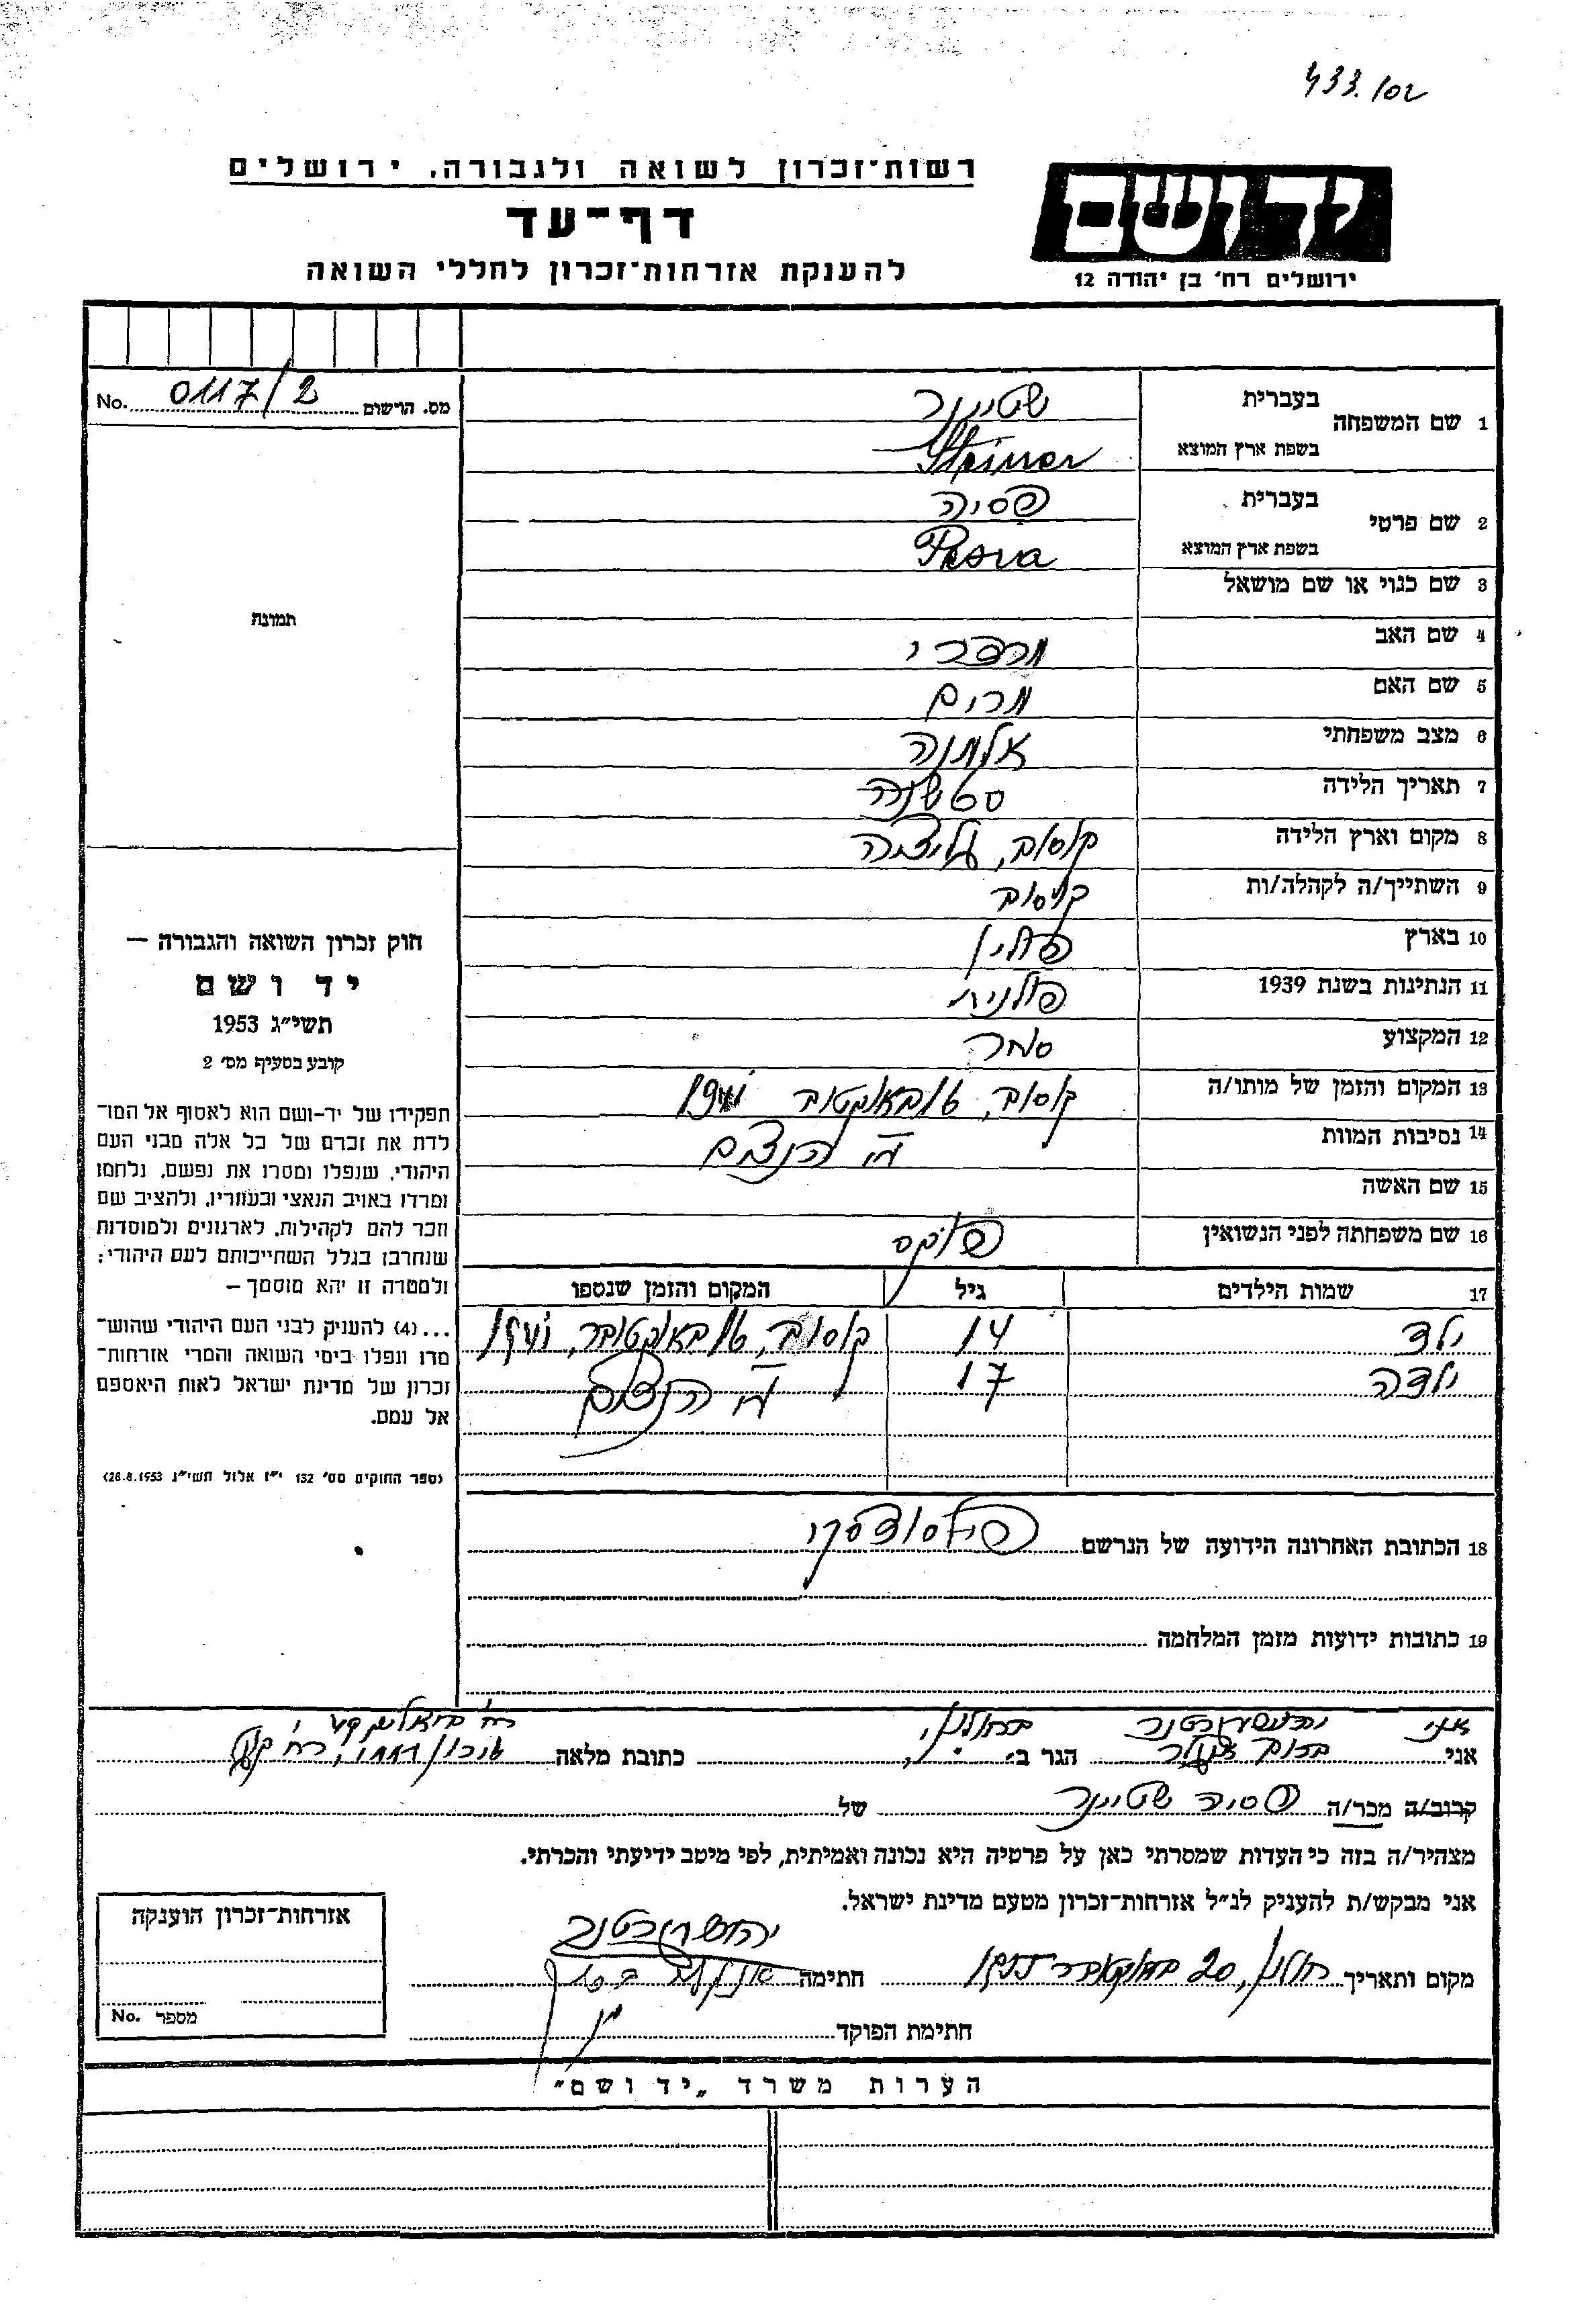 433.102
רשות־זכרון לשואה ולגבורה, ירושלים
דף־עד
להענקת אזרחות־זכרון לחללי השואה
יד ושם
ירושלים רח' בן יהודה 12
No. 0117/2 מס. הרישום
תמונה
1 שם המשפחה בעברית שטיינר
בשפת ארץ המוצא Steiner
2 שם פרטי בעברית פסיה
בשפת ארץ המוצא Pesia
3 שם כנוי או שם מושאל
4 שם האב מרדכי
5 שם האם מרים
6 מצב משפחתי אלמנה
7 תאריך הלידה
8 מקום וארץ הלידה קוסוב, גליציה
9 השתייך/ה לקהלה/ות קוסוב
10 בארץ פולין
11 הנתינות בשנת 1939 פולנית
12 המקצוע סחר
13 המקום והזמן של מותו/ה קוסוב, 16 באוקטובר 1941
14 נסיבות המוות ע"י הנאצים
15 שם האשה
16 שם משפחתה לפני הנשואין פוקס
17 שמות הילדים גיל המקום והזמן שנספו
ילד 14 קוסוב, 16 באוקטובר, 1941
ילדה 17 ע"י הנאצים
18 הכתובת האחרונה הידועה של הנרשם פילסודסקי
19 כתובות ידועות מזמן המלחמה
חוק זכרון השואה והגבורה –
יד ושם
תשי״ג 1953
קובע בסעיף מס' 2
תפקידו של יד-ושם הוא לאסוף אל המו־
לדת את זכרם של כל אלה מבני העם
היהודי, שנפלו ומסרו את נפשם, נלחמו
ומרדו באויב הנאצי ובעוזריו, ולהציב שם
וזכר להם לקהילות, לארגונים ולמוסדות
שנחרבו בגלל השתייכותם לעם היהודי;
ולמטרה זו יהא מוסמך –
...(4) להעניק לבני העם היהודי שהוש־
מדו ונפלו בימי השואה והמרי אזרחות־
זכרון של מדינת ישראל לאות היאספם
אל עמם.
(ספר החוקים מס' 132 י״ז אלול תשי״ג 28.8.1953)
אני
אני הגר ב בחולון, כתובת מלאה
קרוב/ה מכר/ה פסיה שטיינר של
מצהיר/ה בזה כי העדות שמסרתי כאן על פרטיה היא נכונה ואמיתית, לפי מיטב ידיעתי והכרתי.
אני מבקש/ת להעניק לנ״ל אזרחות־זכרון מטעם מדינת ישראל.
מקום ותאריך חולון, 20 באוקטובר 1955 חתימה
חתימת הפוקד
אזרחות־זכרון הוענקה
מספר No.
הערות משרד „יד ושם״